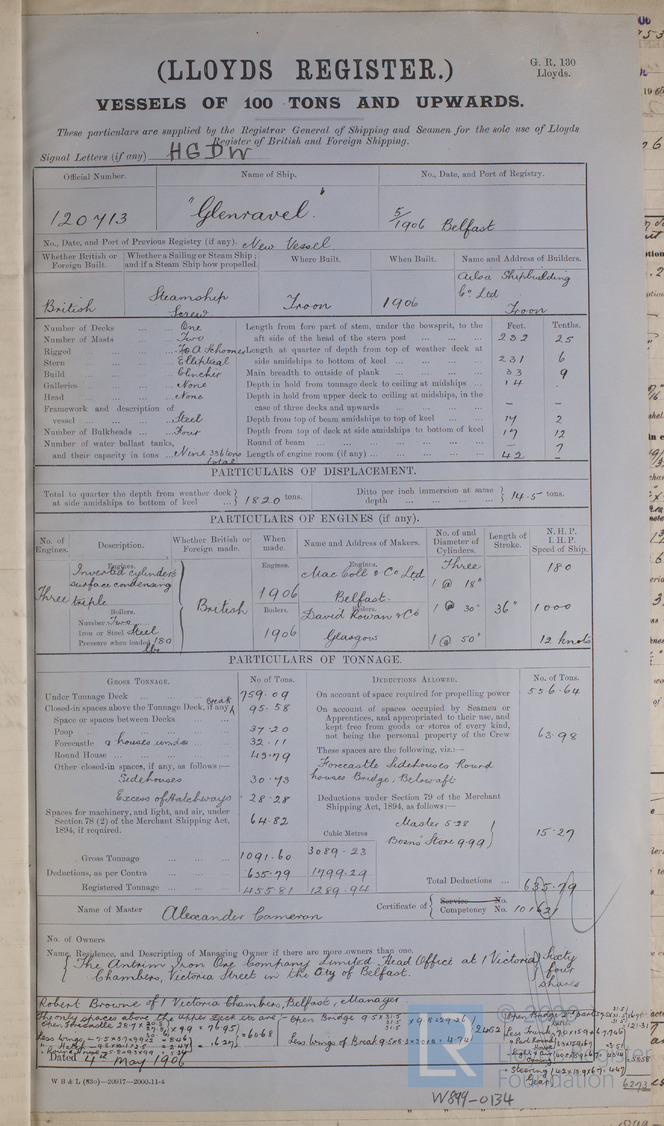 (LLOYDS REGISTER.)
G. R. 130
Lloyds.
VESSELS OF 100 TONS AND UPWARDS.
These particulars are supplied by the Registrar General of Shipping and Seamen for the sole use of Lloyds
Register of British and Foreign Shipping.
Signal Letters (if any) HGDW
Official Number.
Name of Ship.
No., Date, and Port of Registry.
120713
"Glenravel"
5/1906 Belfast
No., Date, and Port of Previous Registry (if any). New Vessel
Whether British or Foreign Built.
Whether a Sailing or Steam Ship; and if a Steam Ship how propelled.
Where Built.
When Built.
Name and Address of Builders.
British
Steamship Screw
Troon
1906
Ailsa Shipbuilding Co Ltd Troon
Feet. Tenths.
Number of Decks ... ... One
Number of Masts ... ... Two
Rigged ... ... F & A Schooner
Stern ... ... Elliptical
Build ... ... Clincher
Galleries ... ... None
Head ... ... None
Framework and description of vessel ... ... Steel
Number of Bulkheads ... Four
Number of water ballast tanks, and their capacity in tons ... Nine 336 tons total
Length from fore part of stem, under the bowsprit, to the aft side of the head of the stern post ... 232 25
Length at quarter of depth from top of weather deck at side amidships to bottom of keel ... 231 6
Main breadth to outside of plank ... 33 9
Depth in hold from tonnage deck to ceiling at midships ... 14 .
Depth in hold from upper deck to ceiling at midships, in the case of three decks and upwards ... – –
Depth from top of beam amidships to top of keel ... 17 2
Depth from top of deck at side amidships to bottom of keel 17 12
Round of beam ... – 7
Length of engine room (if any) ... 42 –
PARTICULARS OF DISPLACEMENT.
Total to quarter the depth from weather deck at side amidships to bottom of keel ... 1820 tons.
Ditto per inch immersion at same depth ... 14.5 tons.
PARTICULARS OF ENGINES (if any).
No. of Engines.
Description.
Whether British or Foreign made.
When made.
Name and Address of Makers.
No. of and Diameter of Cylinders.
Length of Stroke.
N. H. P.
I. H. P.
Speed of Ship.
Three
Engines.
Inverted cylinders surface condensing triple
Boilers.
Number Two
Iron or Steel Steel
Pressure when loaded 180 lbs
British
Engines.
1906
Boilers.
1906
Engines.
MacColl & Co Ltd
Belfast
Boilers.
David Rowan & Co
Glasgow
Three
1 @ 18"
1 @ 30"
1 @ 50"
36"
180
1000
12 knots
PARTICULARS OF TONNAGE.
GROSS TONNAGE.
No of Tons.
Under Tonnage Deck ... 759.09
Closed-in spaces above the Tonnage Deck, if any Break 95.58
Space or spaces between Decks
Poop ... 37.20
Forecastle & houses under ... 32.11
Round House ... 43.79
Other closed-in spaces, if any, as follows:—
Sidehouses 30.73
Excess of Hatchways 28.28
Spaces for machinery, and light, and air, under Section 78 (2) of the Merchant Shipping Act, 1894, if required. 64.82
Cubic Metres
Gross Tonnage ... 1091.60 3089.23
Deductions, as per Contra ... 635.79 1799.29
Registered Tonnage ... 455.81 1289.94
DEDUCTIONS ALLOWED.
No. of Tons.
On account of space required for propelling power 556.64
On account of spaces occupied by Seamen or Apprentices, and appropriated to their use, and kept free from goods or stores of every kind, not being the personal property of the Crew 63.98
These spaces are the following, viz.:—
Forecastle Sidehouses Round houses Bridge, Below aft
Deductions under Section 79 of the Merchant Shipping Act, 1894, as follows:—
Master 5.28
Bosns Store 9.99
15.27
Total Deductions ... 635.79
Name of Master Alexander Cameron
Certificate of Service No.
Competency No. 101621
No. of Owners
Name, Residence, and Description of Managing Owner if there are more owners than one.
The Antrim Iron Ore Company Limited, Head Office at 1 Victoria
Chambers, Victoria Street in the City of Belfast.
Sixty four shares
Robert Browne of 1 Victoria Chambers, Belfast, Manager
The only spaces above the Upper Deck etc are:-
Dated 4th May 1906
W B & L (830)—20917—2000-11-4
W899-0134
LR
© 2020
Lloyd's Register
Foundation